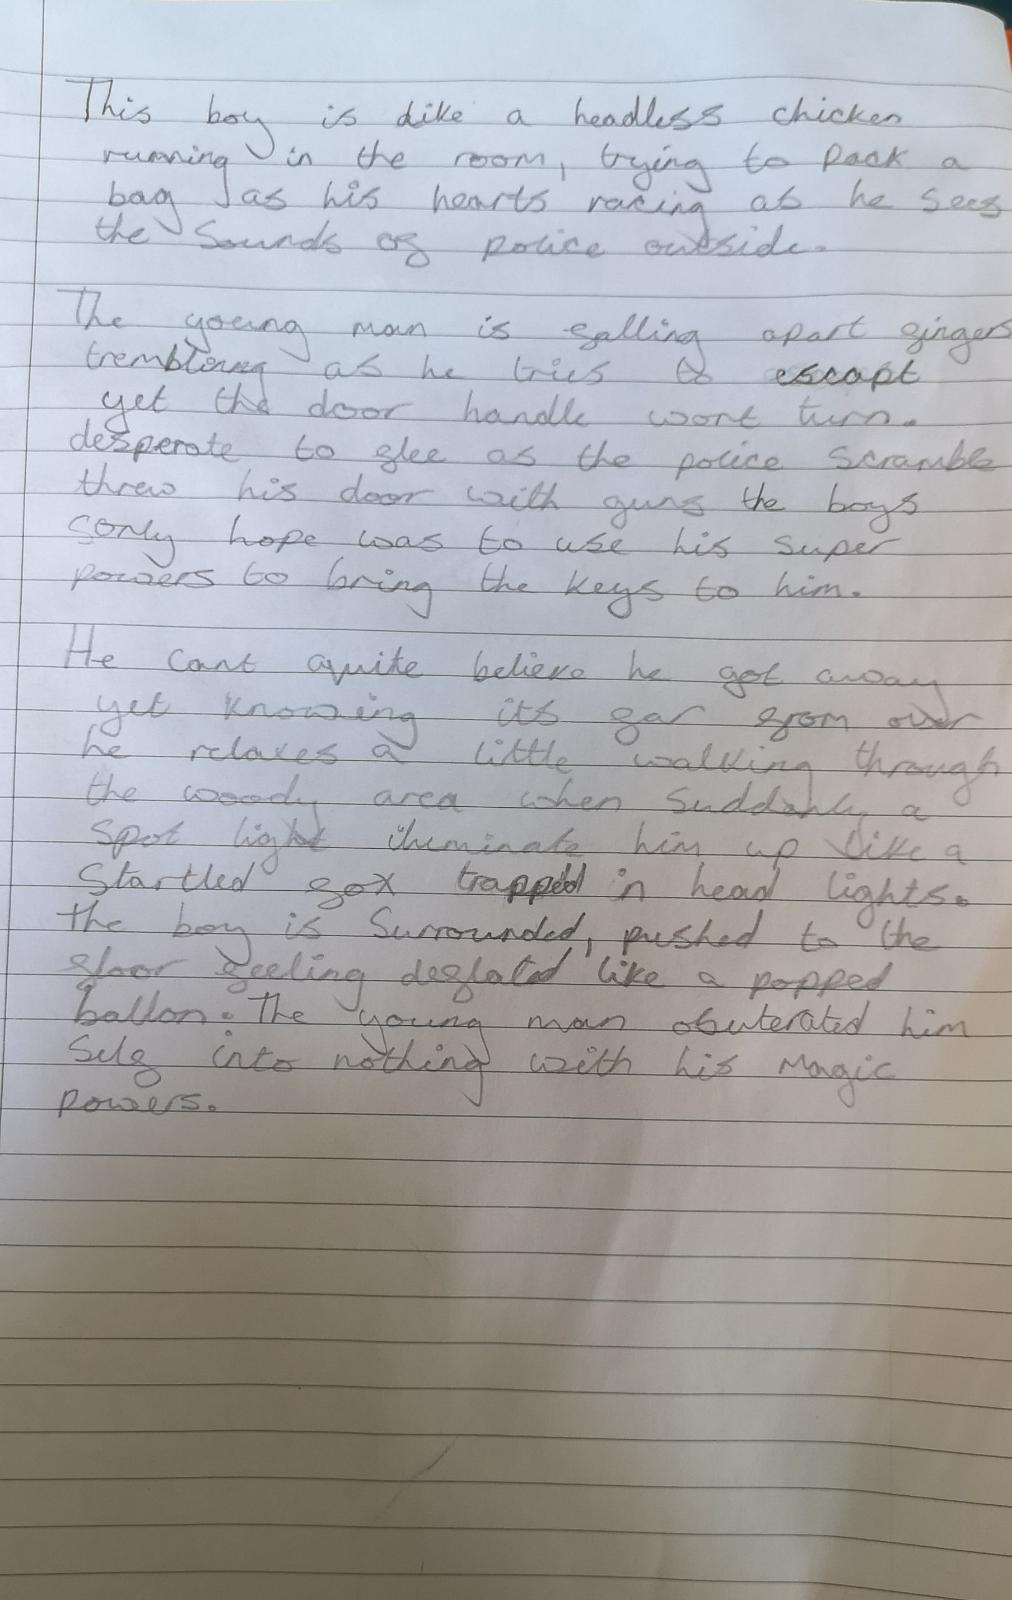 This boy is like a headless chicken
running in the room, trying to pack a
bag as his hearts racing as he sees
the sounds of police outside.
The young man is falling apart fingers
trembling as he tries to escapt
yet the door handle wont turn.
desperate to flee as the police scramble
threw his door with guns the boys
only hope was to use his super
powers to bring the keys to him.
He cant quite believe he got away
yet knowing its far from over
he relaxes a little walking through
the woody area when suddanly a
spot light illuminate him up like a
startled fox trapped in head lights.
the boy is surrounded, pushed to the
floor feeling deflated like a popped
ballon. The young man obuterated him
self into nothing with his magic
powers.